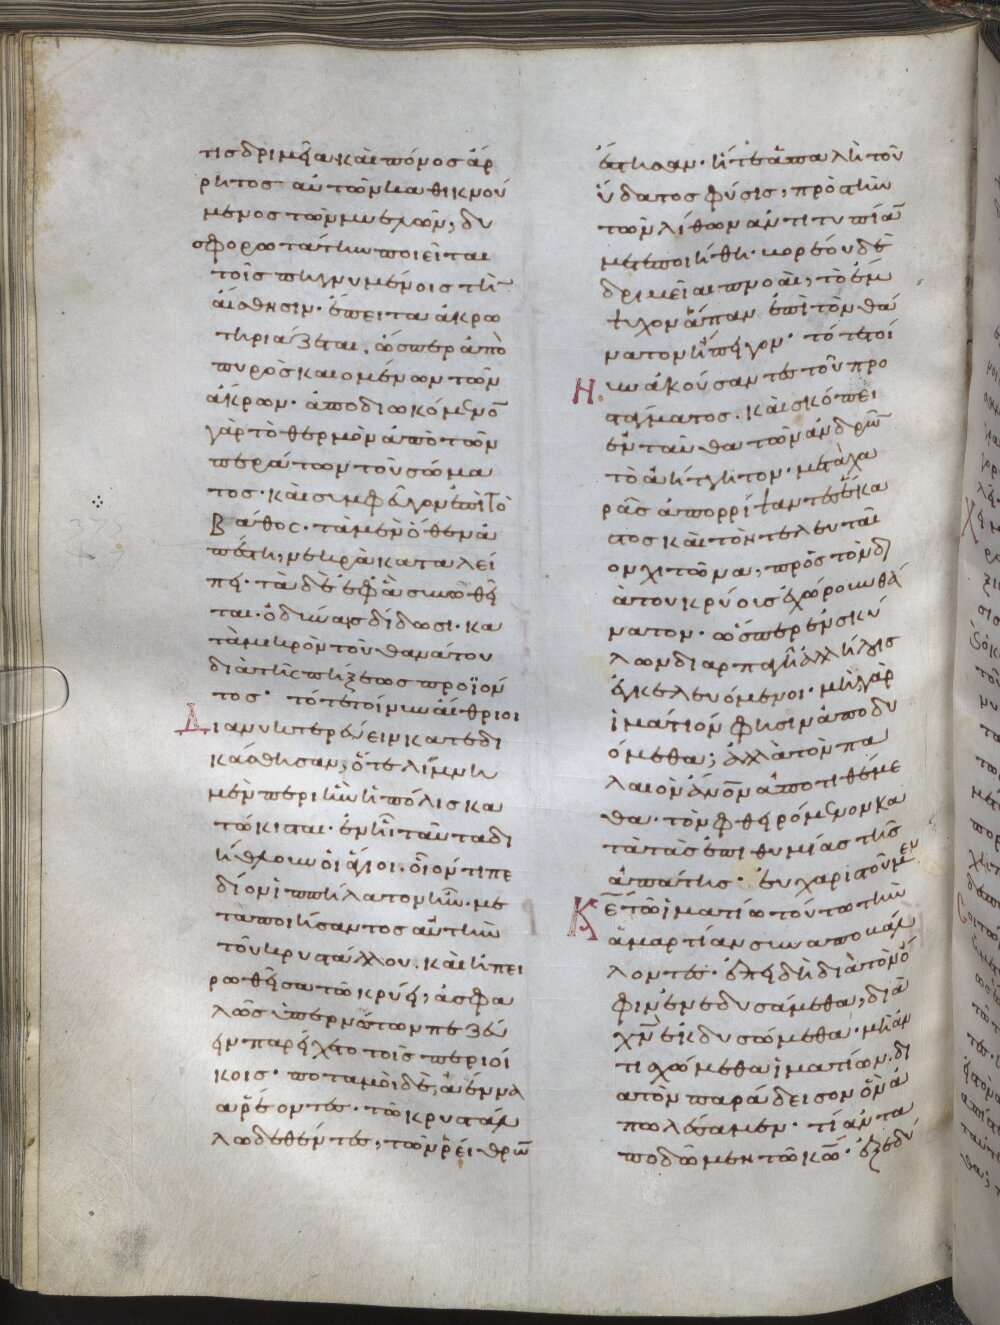 τις δριμεῖα καὶ πόνος ἄρ
ρητος αὐτῶν καθικνού
μενος τῶν μυελῶν, δυ
σφορωτάτην ποιεῖται
τοῖς πηγνυμένοις τὴν
αἴσθησιν· ἔπειτα ἀκρω
τηριάζεται, ὥσπερ ἀπὸ
πυρὸς καιομένων τῶν
ἄκρων· ἀποδιωκόμενο̅
γὰρ τὸ θερμὸν ἀπὸ τῶν
περάτων τοῦ σώμα
τος· καὶ συμφεῦγον ἐπὶ τὸ
βάθος· τὰ μὲν ὅθεν ἀ
πέστη, νεκρὰ καταλεί
πει· τὰ δὲ ἐφ' ἃ συνωθεῖ
ται· ὀδύναις δίδωσι· κα
τὰ μικρὸν τοῦ θανάτου
διὰ τῆς πήξεως προϊόν
τος· τότε τοίνυν αἴθριοι
Διανυκτερεύειν κατεδι
κάσθησαν, ὅτε λίμνη
μὲν περὶ ἣν ἡ πόλις κα
τώκισται· ἐν ᾗ ταῦτα δι
ήθλουν οἱ ἅγιοι· οἷόν τι πε
δίον ἱππήλατον ἦν· με
ταποιήσαντος αὐτὴν
τοῦ κρυστάλλου. καὶ ἠπει
ρωθεῖσα τῷ κρύει, ἀσφα
λῶς ὑπὲρ νώτων πεζεύ
ειν παρείχετο τοῖς περιοί
κοις· ποταμοὶ δὲ, ἀένναα
ῥέοντες· τῷ κρυστάλ
λῳ δεθέντες, τῶν ῥείθρω̅
ἔστησαν· ἥ τε ἁπαλὴ τοῦ
ὕδατος φύσις, πρὸς τὴν
τῶν λίθων ἀντιτυπία̅
μετεποιήθη· βορέου δὲ
δριμεῖαι πνοαὶ, τὸ ἔμ
ψυχον ἅπαν ἐπὶ τὸν θά
νατον ἤπειγον· τότε τοί
Νυν ἀκούσαντες τοῦ προ
στάγματος. καὶ σκόπει
ἐνταῦθα τῶν ἀνδρῶ̅
τὸ ἀήττητον· μετὰ χα
ρᾶς ἀπορρίψαντες ἕκα
στος καὶ τὸν τελευταῖ
ον χιτῶνα, πρὸς τὸν δι
ὰ τοῦ κρύους ἐχώρουν θά
νατον· ὥσπερ ἐν σκύ
λων διαρπαγῇ ἀλλήλοις
ἐγκελευόμενοι· μὴ γὰρ
ἱμάτιόν φησιν ἀποδυ
όμεθα; ἀλλὰ τὸν πα
λαιὸν α̅ν̅ο̅ν̅ ἀποτιθέμε
θα· τὸν φθειρόμενον κα
τὰ τὰς ἐπιθυμίας τῆς
ἀπάτης· εὐχαριστοῦμέν
σοι Κ̅Ε̅ τῷ ἱματίῳ τούτῳ τὴν
ἁμαρτίαν συναποβάλ
λοντες· ἐπειδὴ διὰ τὸν ὄ
φιν ἐνεδυσάμεθα, διὰ
χ̅ν̅ ἐκδυσώμεθα· μὴ ἀν
τισχώμεθα ἱματίων. δι
ὰ τὸν παράδεισον ὃν ἀ
πωλέσαμεν· τί ἀντα
ποδῶμεν τῷ κ̅ω̅· ἐξεδύ